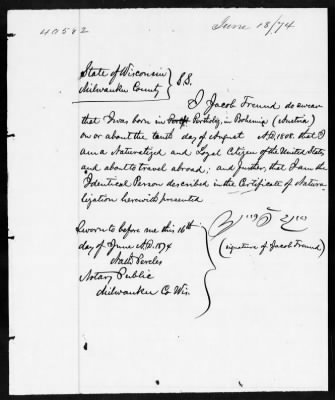 40582
June 18/74
State of Wisconsin
Milwaukee County } S.S.
I Jacob Freund do swear
that I was born in Bohemia (Austria)
on or about the tenth day of August A.D. 1808. that I
am a Naturalized and Loyal Citizen of the United States
and about to travel abroad; and further, that I am the
Identical Person described in the Certificate of Natura-
lization herewith presented
Sworn to before me this 16th
day of June A.D. 1874
Nath Pereles
Notary Public
Milwaukee Co Wis.
(signature of Jacob Freund)